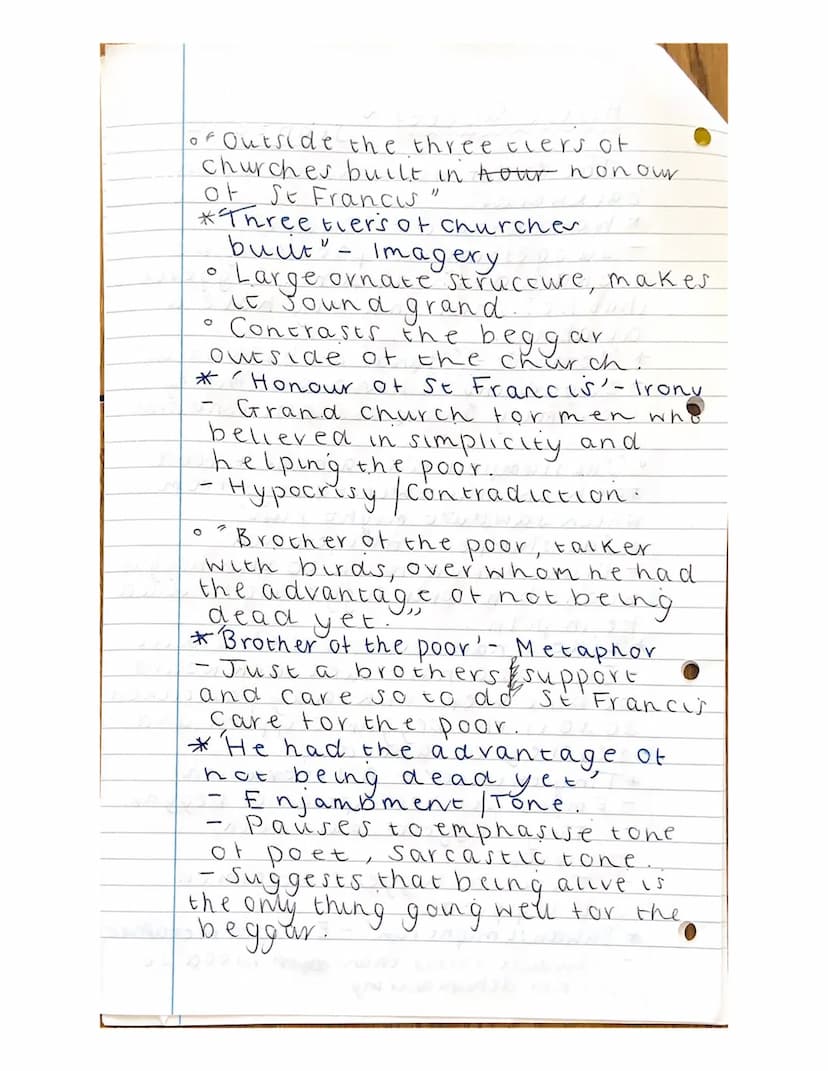 ° “Outside the three tiers of
churches built in hour honour
of St Francis”
* 'Three tiers of churches
built" - Imagery
° Large ornate structure, makes
it sound grand.
° Contrasts the beggar
outside of the church.
* 'Honour of St Francis' - Irony
- Grand church for men who
believed in simplicity and
helping the poor.
- Hypocrisy / Contradiction.
° "Brother of the poor, talker
with birds, over whom he had
the advantage, of not being
dead yet."
* 'Brother of the poor' - Metaphor
- Just a brothers support
and care so to dd St Francis
care for the poor.
* 'He had the advantage of
not being dead yet'
- Enjambment / Tone.
- Pauses to emphasise tone
of poet, sarcastic tone.
- Suggests that being alive is
the only thing going well for the
beggar.